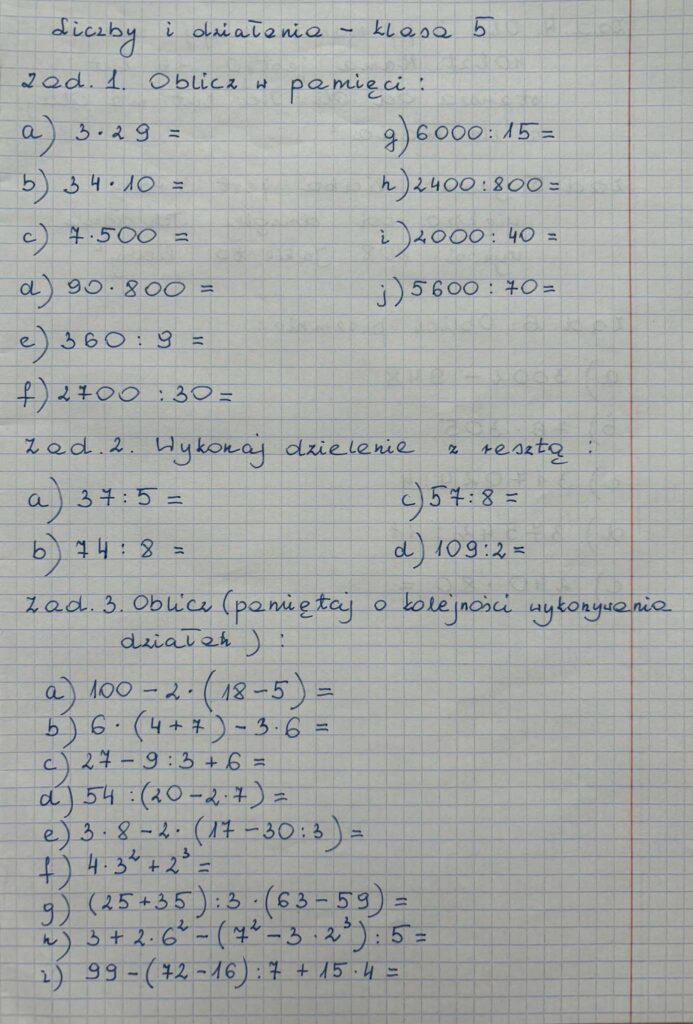 Liczby i działania - klasa 5
Zad. 1. Oblicz w pamięci :
a) 3 · 29 =
b) 34 · 10 =
c) 7 · 500 =
d) 90 · 800 =
e) 360 : 9 =
f) 2700 : 30 =
g) 6000 : 15 =
h) 2400 : 800 =
i) 2000 : 40 =
j) 5600 : 70 =
Zad. 2. Wykonaj dzielenie z resztą :
a) 37 : 5 =
b) 74 : 8 =
c) 57 : 8 =
d) 109 : 2 =
Zad. 3. Oblicz (pamiętaj o kolejności wykonywania
działań) :
a) 100 - 2 · (18 - 5) =
b) 6 · (4 + 7) - 3 · 6 =
c) 27 - 9 : 3 + 6 =
d) 54 : (20 - 2 · 7) =
e) 3 · 8 - 2 · (17 - 30 : 3) =
f) 4 · 3² + 2³ =
g) (25 + 35) : 3 · (63 - 59) =
h) 3 + 2 · 6² - (7² - 3 · 2³) : 5 =
i) 99 - (72 - 16) : 7 + 15 · 4 =